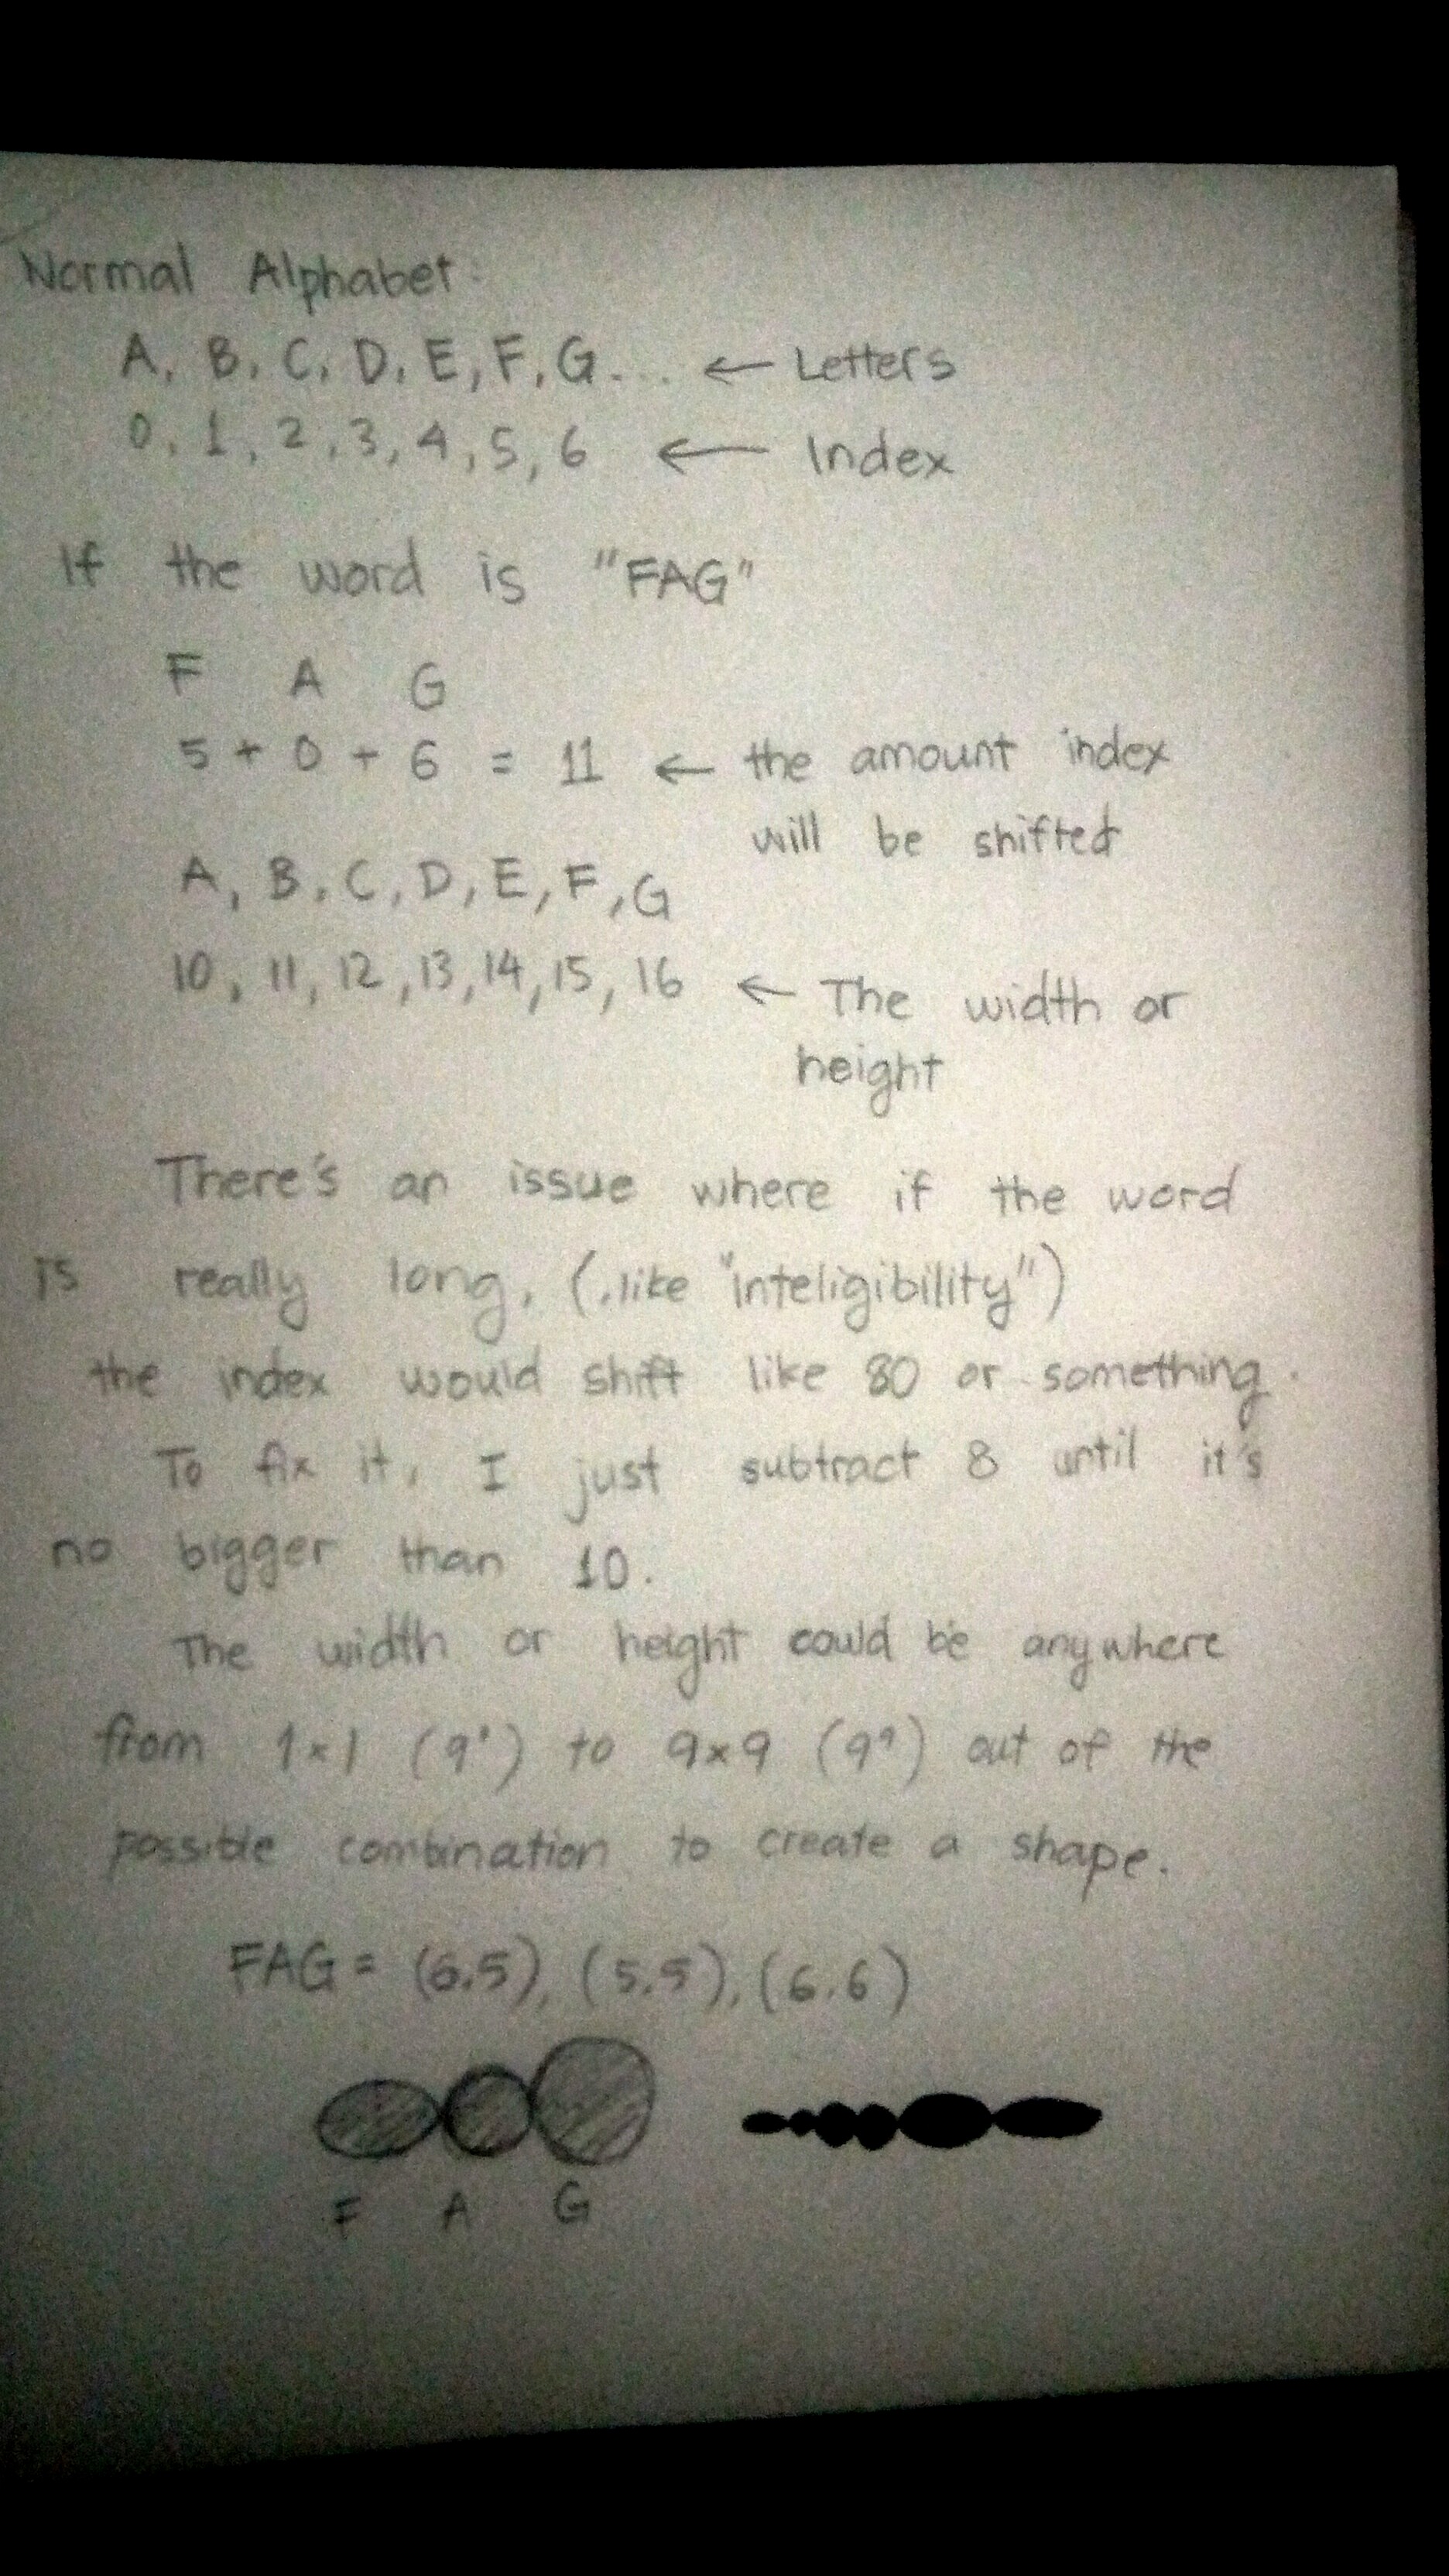 Normal Alphabet:
A, B, C, D, E, F, G... ← Letters
0, 1, 2, 3, 4, 5, 6 ← Index
If the word is "FAG"
F A G
5 + 0 + 6 = 11 ← the amount index
will be shifted
A, B, C, D, E, F, G
10, 11, 12, 13, 14, 15, 16 ← The width or
height
There's an issue where if the word
is really long, (.like "inteligibility")
the index would shift like 80 or something.
To fix it, I just subtract 8 until it's
no bigger than 10.
The width or height could be anywhere
from 1×1 (9¹) to 9×9 (9⁹) out of the
possible combination to create a shape.
FAG = (6.5), (5.5), (6.6)
F A G